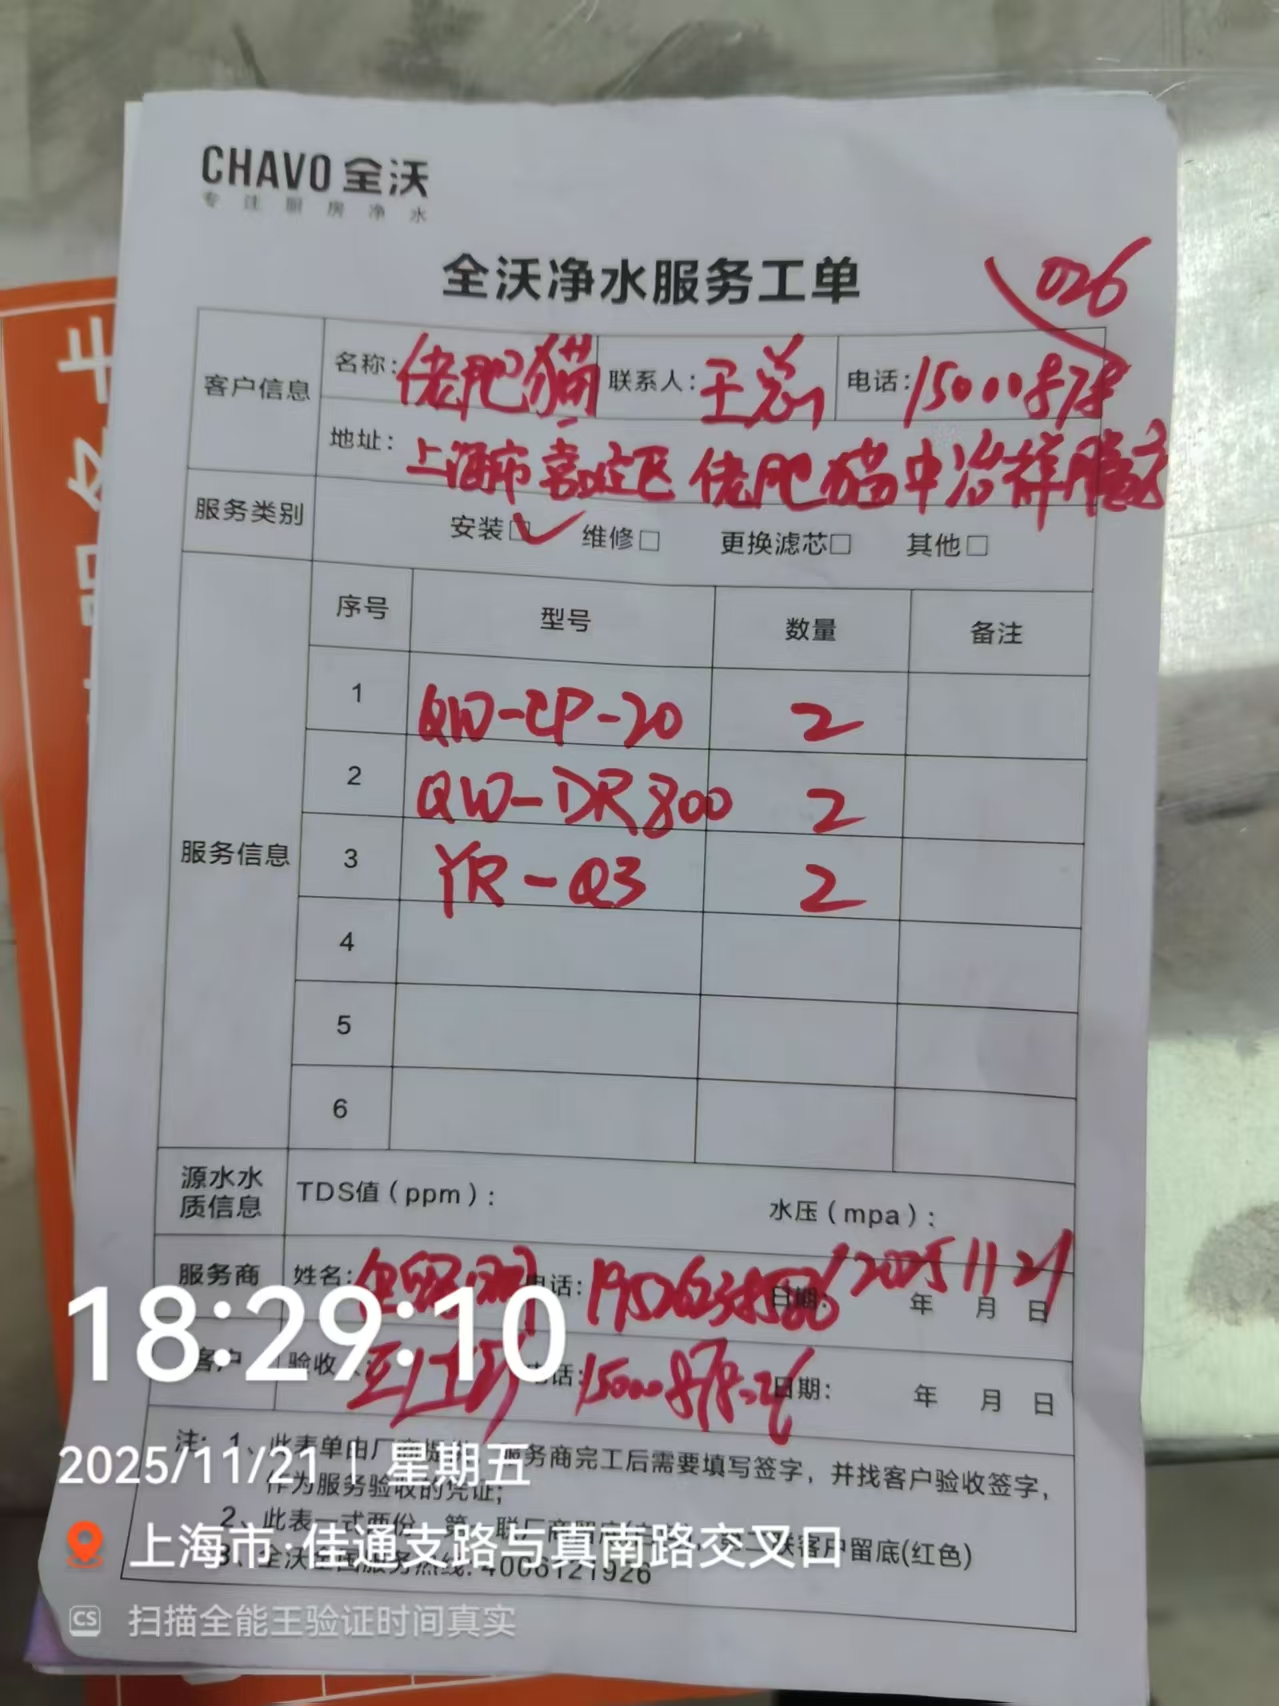 CHAVO 全沃
专注厨房净水
全沃净水服务工单
026
客户信息 名称:佬肥猫 联系人:王总 电话:15000878
地址:上海市嘉定区佬肥猫中冶祥腾
服务类别 安装☑ 维修□ 更换滤芯□ 其他□
服务信息 序号 型号 数量 备注
1 QW-CP-20 2
2 QW-DR800 2
3 YR-Q3 2
4
5
6
源水水质信息 TDS值(ppm): 水压(mpa):
服务商 姓名: 电话: 日期: 2025 年 11 月 21 日
客户 验收人: 电话: 日期: 年 月 日
注: 1、此表单由厂商提供,服务商完工后需要填写签字,并找客户验收签字,
作为服务验收的凭证;
2、此表一式两份,第一联厂商留底 第二联客户留底(红色)
3、全沃全国服务热线:4006121926
18:29:10
2025/11/21 | 星期五
上海市·佳通支路与真南路交叉口
CS 扫描全能王验证时间真实